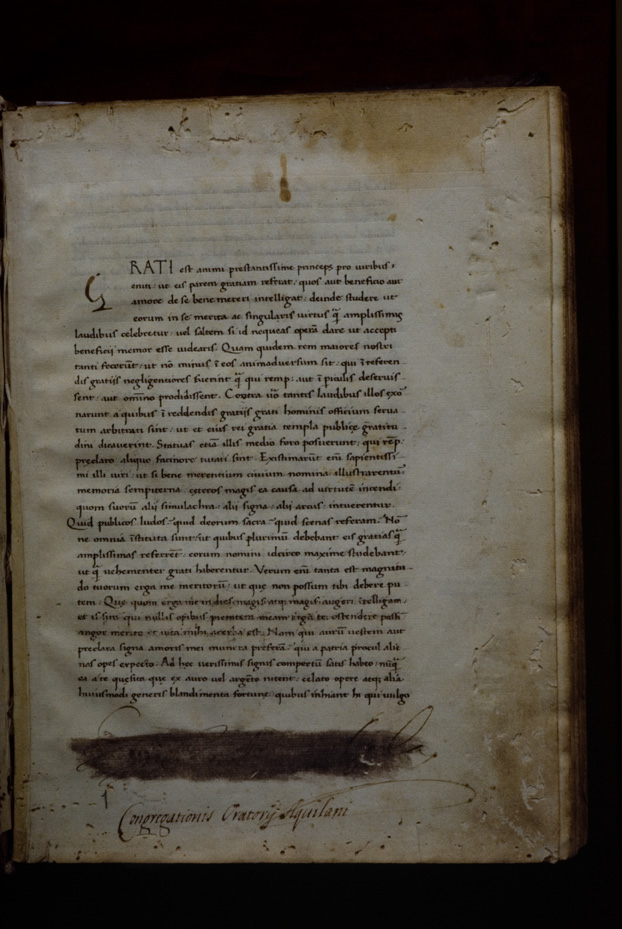 GRATI est animi prestantissime princeps pro viribus
eniti: ut eis parem gratiam referat: quos aut beneficio aut
amore de se bene mereri intelligat: deinde studere ut
eorum in se merita ac singularis virtus q̃ amplissimis
laudibus celebretur: vel saltem si id nequeas operã dare ut accepti
beneficij memor esse videaris. Quam quidem rem maiores nostri
tanti fecerũt: ut nõ minus ĩ eos animadversum sit: qui ĩ referen
dis gratijs negligentiores fuerint q̃ qui remp: aut ĩ piculis deservis
sent: aut omĩno prodidissent. Contra ṽo tantis laudibus illos exo
narunt a quibus ĩ reddendis gratijs grati hominis officium serva
tum arbitrati sint: ut et eius rei gratia templa publice gratitu
dini dicaverint. Statuas etiã illis medio foro posuerunt: qui rẽp
preclaro aliquo facinore tutati sint. Existimarũt em̃ sapientissi
mi illi viri: ut si bene merentium civium nomina illustrarentur
memoria sempiterna: ceteros magis ea causa ad virtutẽ incendi
quom suorũ alij simulachra: alij signa: alij arcus intuerentur.
Quid publicos ludos: quid deorum sacra: quid scenas referam. Nõ
ne omnia ĩstituta sunt: ut quibus plurimũ debebant: eis gratias q̃
amplissimas referrẽt: eorum nomini: idcirco maxime studebant:
ut q̃ vehementer grati haberentur. Verum em̃ tanta est magnitu
do tuorum erga me meritorũ: ut que non possum tibi debere pu
tem. Que quom erga me in dies magis atq magis augeri ĩtelligam
et is sim qui nullis opibus
angor merito et vita mihi acerba est. Nam qui aurũ vestem aut
preclara signa amoris mei munera preferã: qui a patria procul alie
nas opes expecto. Ad hec verissimis signis compertũ satis habeo: nũq̃
ea a te quesita que ex auro vel argẽto nitent: celato opere atq alia
huiusmodi generis blandimenta fortune: quibus inhiant hi qui vulgo
Congregationis Oratorij Aquilani